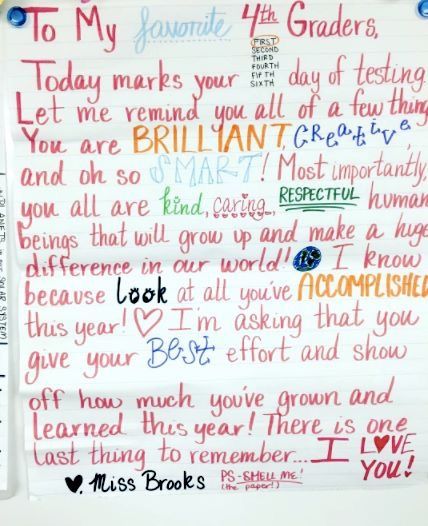 To My favorite 4th Graders,
FIRST
SECOND
THIRD
FOURTH
FIFTH
SIXTH
Today marks your day of testing.
Let me remind you all of a few thing
You are BRILLIANT, Creative,
and oh so SMART! Most importantly,
you all are kind, caring, RESPECTFUL human
beings that will grow up and make a huge
difference in our world! I know
because look at all you've ACCOMPLISHED
this year! ♡ I'm asking that you
give your Best effort and show
off how much you've grown and
learned this year! There is one
last thing to remember... I L♥VE
YOU!
♥, Miss Brooks
PS-SMELL ME!
(the paper!)